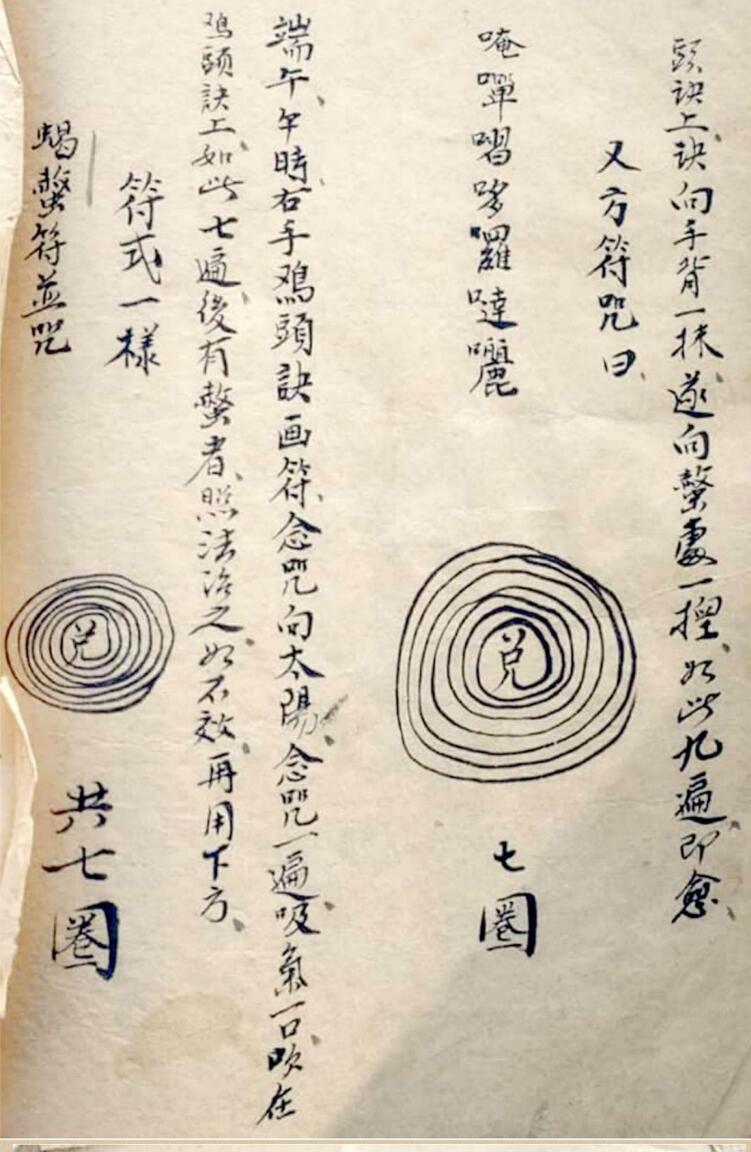 頭訣上、訣向手背一抹、遂向螫處一揑、如此九遍即愈、
又方符咒曰、
唵嘽哆囉噠囇
兑
七圈
端午、午時右手鸡頭訣画符、念咒向太陽、念咒一遍吸氣一口、吹在
鸡頭訣上、如此七遍、後有螫者、照法治之、如不效、再用下方、
符式一樣
蝎螫符並咒
兑
共七圈